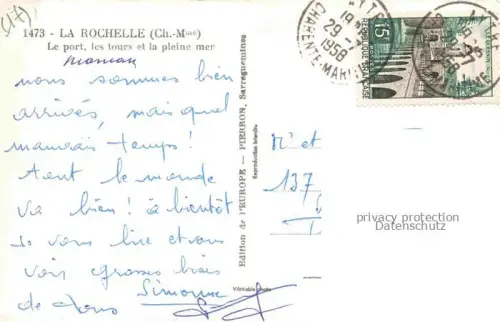 (17)
1473 - LA ROCHELLE (Ch.-Mme)
Le port, les tours et la pleine mer
Maman
nous sommes bien
arrivés, mais quel
mauvais temps !
tout le monde
va bien ! à bientôt
de vous lire et vous
grosses bises
de tous Simone
Véritable photo
Edition de l'EUROPE - PIERRON, Sarreguemines
Reproduction interdite
Mr et
137
29
1958
CHARENTE-MAR
15F
privacy protection
Datenschutz